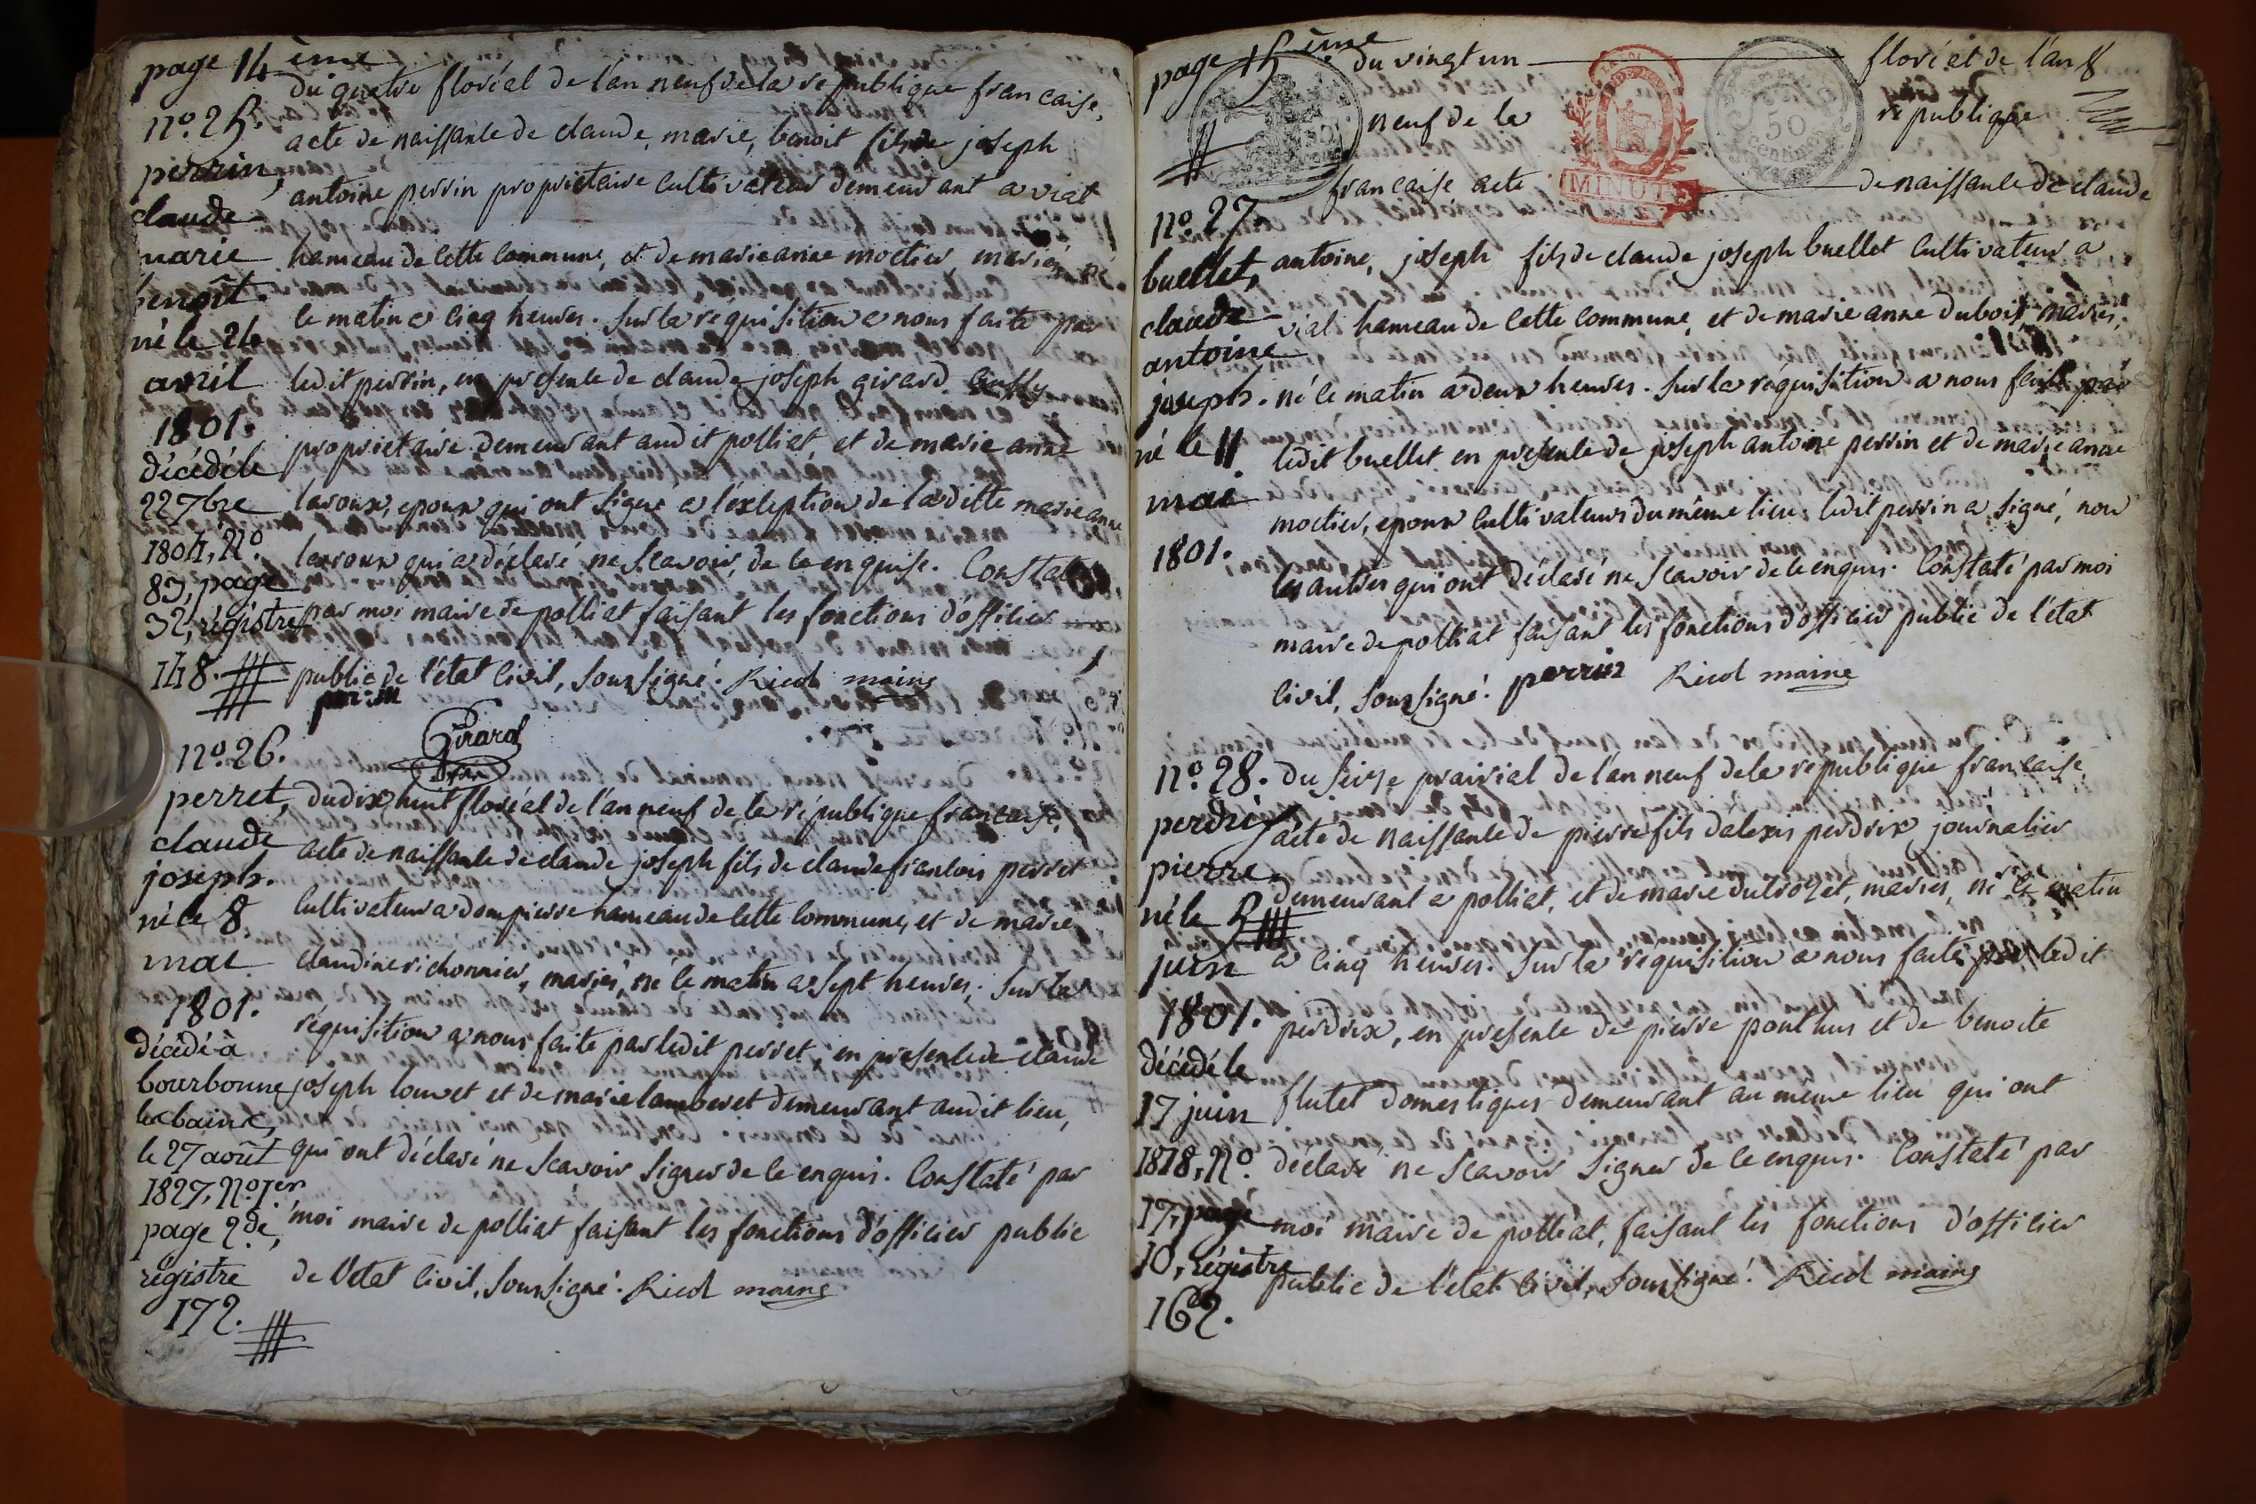 page 14 ème
du quatre floréal de l'an neuf de la republique francaise,
n.o 25.
acte de naissance de claude, marie, benoit fils de joseph
perrin,
antoine perrin proprietaire cultivateur demeurant a vial
claude
marie
hameau de cette commune, et de marie anne moctier, mariés, né
benoît.
le matin a cinq heures. sur la requisition a nous faite par
né le 24
avril
ledit perrin, en presence de claude joseph girard
1801.
proprietaire demeurant audit polliat, et de marie anne
décédé le
22 7bre
laroux, epoux qui ont signé a l'exception de ladite marie anne
1804, N.o
laroux qui a déclaré ne scavoir, de ce enquise. Constaté
83, page
32, régistre
par moi maire de polliat faisant les fonctions d'officier
148.
public de l'état civil, soussigné. Ricol maire
perrin
Girard
n.o 26.
perret,
du dix huit floréal de l'an neuf de la république francaise,
claude
acte de naissance de claude joseph fils de claude francois perret
joseph.
né le 8
cultivateur a dompierre hameau de cette commune, et de marie
mai
claudine richonnier, mariés, né le matin a sept heures. sur la
1801.
réquisition a nous faite par ledit perret, en presence de claude
décédé à
bourbonne
joseph louvet et de marie lamberet demeurant audit lieu,
les bains,
le 27 août
qui ont déclaré ne scavoir signer de ce enquis. Constaté par
1827, N.o 1.er
page 2.de,
moi maire de polliat faisant les fonctions d'officier public
régistre
de l'état civil, soussigné. Ricol maire
172.
page 15 ème
du vingt un floréal de l'an 8
neuf de la republique
50
centimes
MINUTE
francaise acte de naissance de claude
n.o 27
buellet,
antoine, joseph fils de claude joseph buellet cultivateur a
claude
vial hameau de cette commune, et de marie anne dubois, mariés,
antoine
joseph.
né le matin a deux heures. sur la réquisition a nous faite par
né le 11
ledit buellet en presence de joseph antoine perrin et de marie anne
mai
moctier, epoux cultivateurs du même lieu ledit perrin a signé, non
1801.
les autres qui ont déclaré ne scavoir de ce enquis. Constaté par moi
maire de polliat faisant les fonctions d'officier public de l'état
civil, soussigné. perrin Ricol maire
n.o 28.
du seize prairial de l'an neuf de la république francaise,
perdrix
acte de naissance de pierre fils d'alexis perdrix journalier
pierre.
demeurant a polliat, et de marie dutrozet, mariés, né le matin
né le 5
juin
a cinq heures. sur la requisition a nous faite par ledit
1801.
perdrix, en presence de pierre ponthus et de benoite
décédé le
17 juin
flutet domestiques demeurant au même lieu qui ont
1818, N.o
déclaré ne scavoir signer de ce enquis. Constaté par
17, page
moi maire de polliat, faisant les fonctions d'officier
10, régistre
public de l'état civil, soussigné. Ricol maire
162.